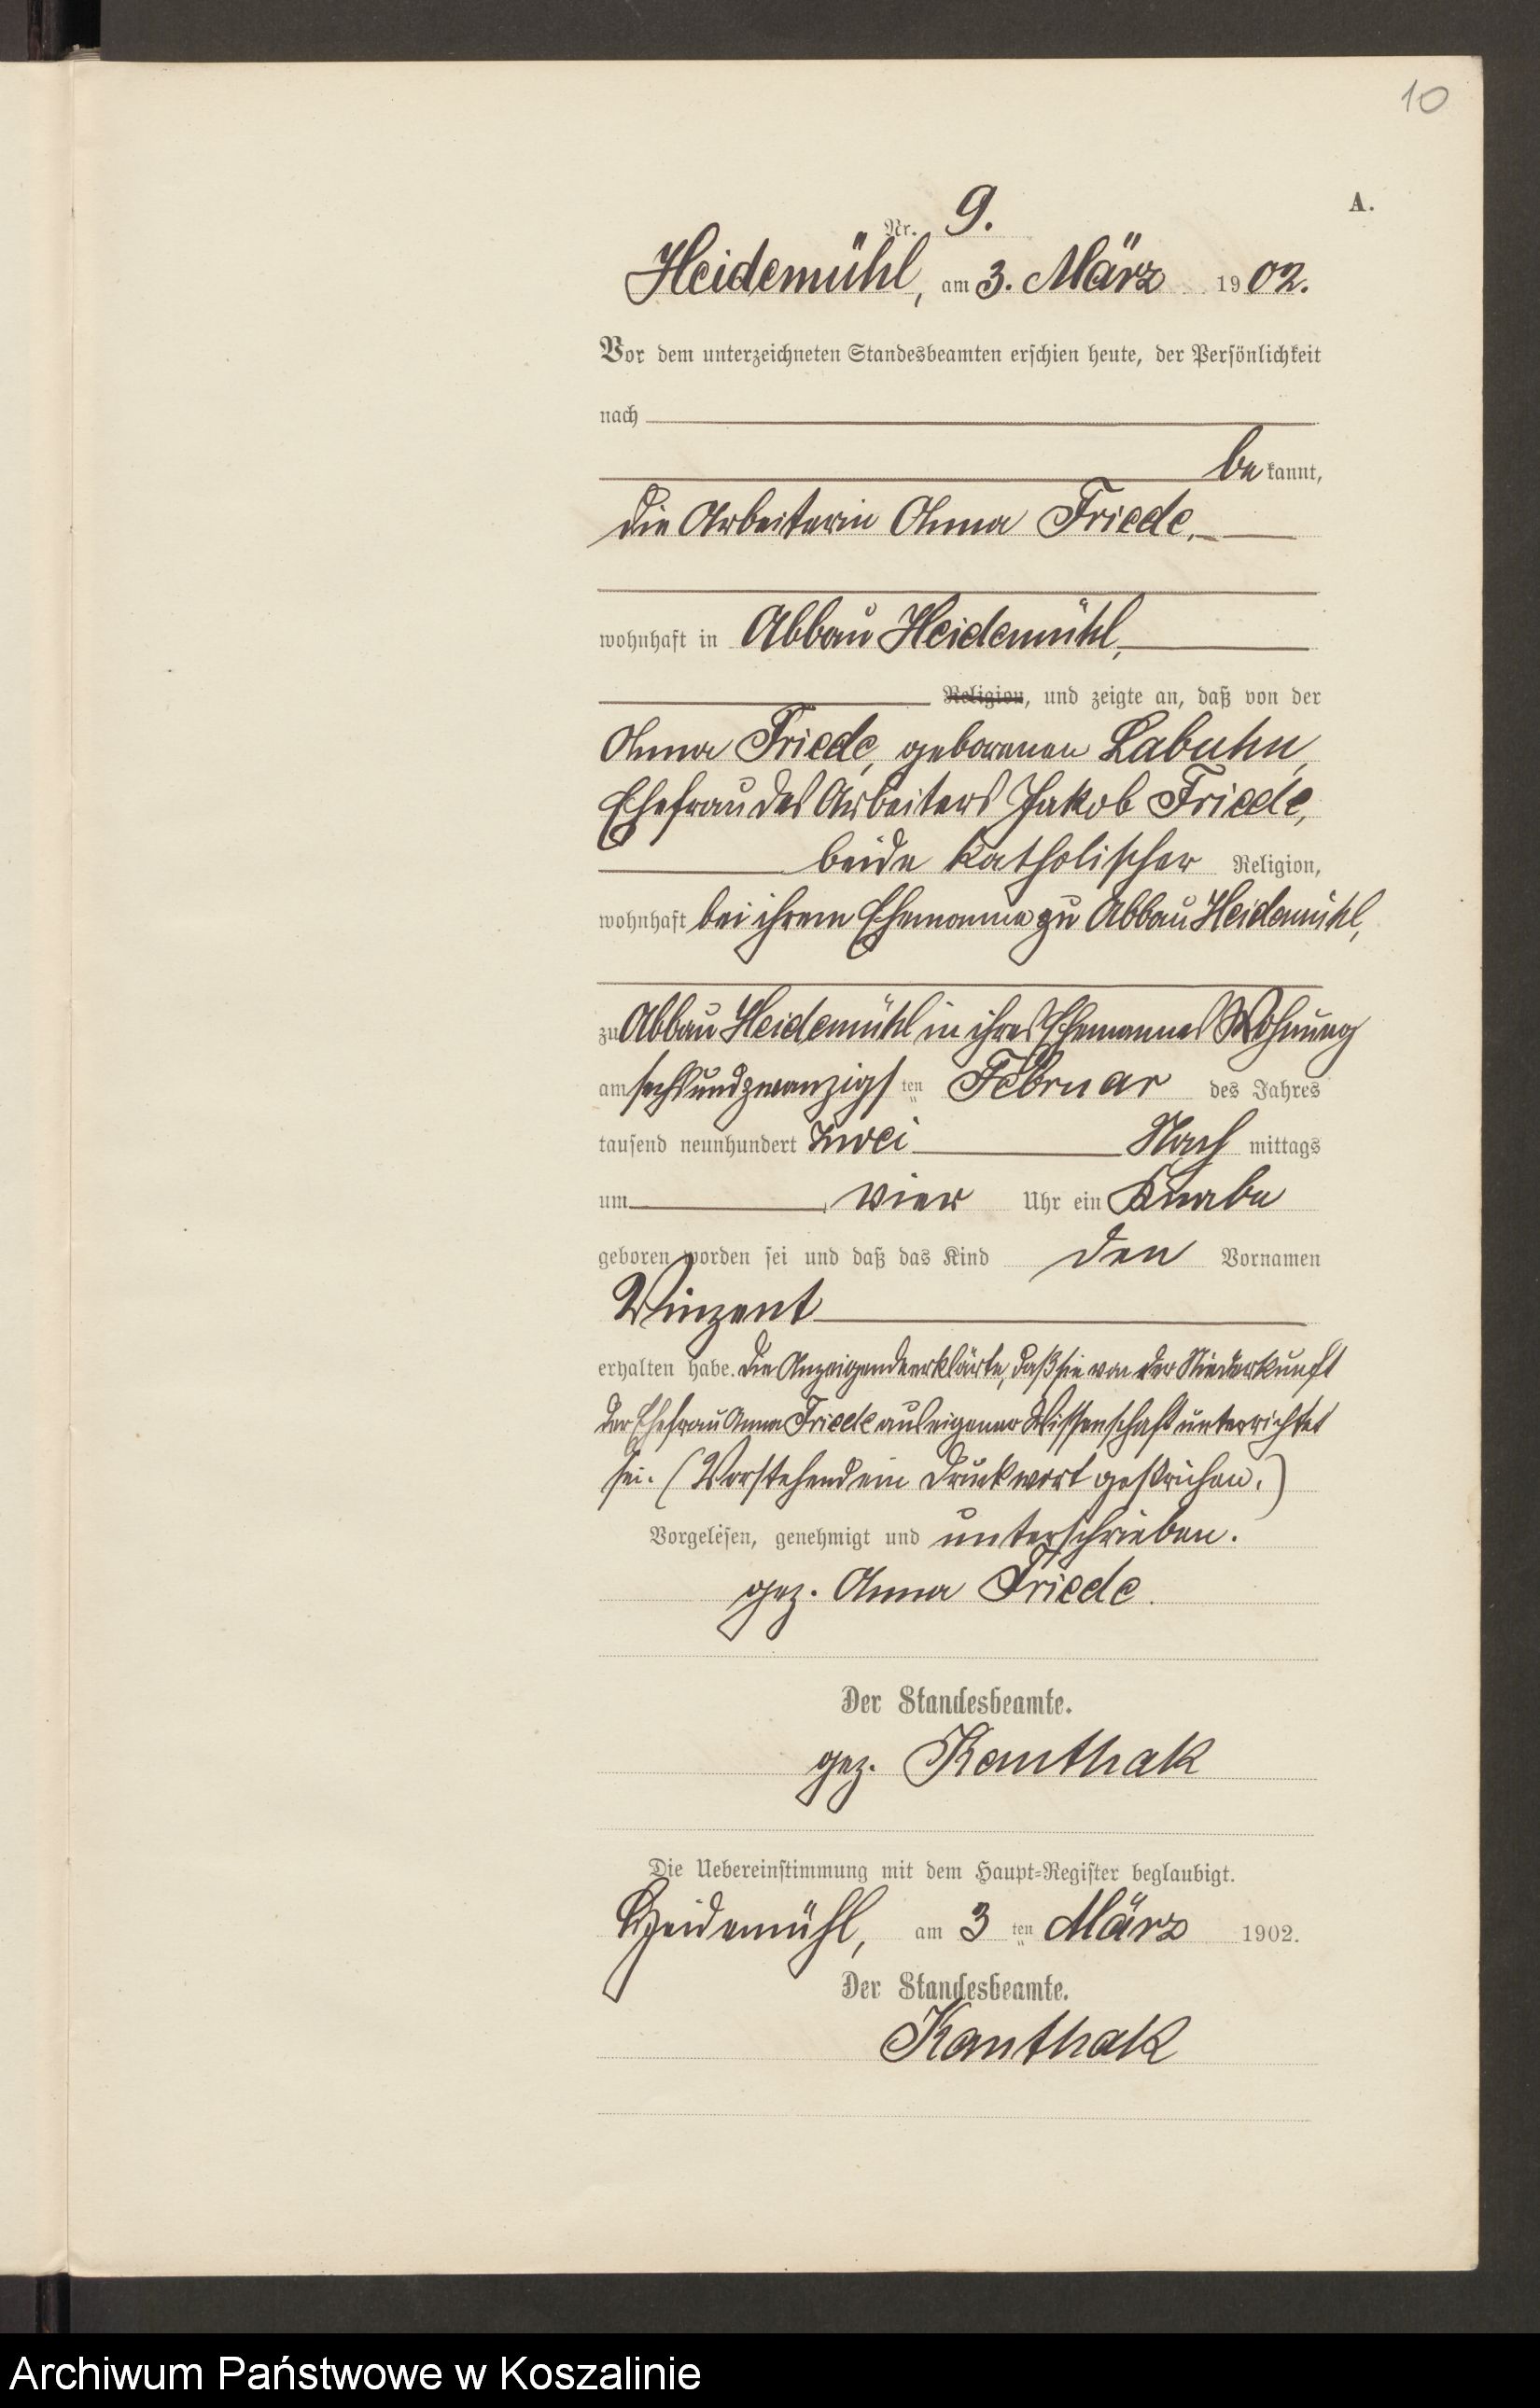 10
A.
Nr. 9.
Heidemühl, am 3. März 1902.
Vor dem unterzeichneten Standesbeamten erschien heute, der Persönlichkeit
nach
be kannt,
die Arbeiterin Anna Friede,
wohnhaft in Abbau Heidemühl,
Religion, und zeigte an, daß von der
Anna Friede, geborenen Labuhn,
Ehefrau des Arbeiters Jakob Friede,
beide katholischer Religion,
wohnhaft bei ihrem Ehemanne zu Abbau Heidemühl,
zu Abbau Heidemühl in ihres Ehemannes Wohnung
am sechsundzwanzigsten Februar des Jahres
tausend neunhundert zwei Nach mittags
um vier Uhr ein Knabe
geboren worden sei und daß das Kind den Vornamen
Vinzent
erhalten habe. Die Anzeigende erklärte, daß sie von der Niederkunft
der Ehefrau Anna Friede aus eigener Wissenschaft unterrichtet
sei. (Vorstehend ein Druckwort gestrichen.)
Vorgelesen, genehmigt und unterschrieben.
gez. Anna Friede.
Der Standesbeamte.
gez. Kanthak
Die Uebereinstimmung mit dem Haupt-Register beglaubigt.
Heidemühl, am 3 ten März 1902.
Der Standesbeamte.
Kanthak
Archiwum Państwowe w Koszalinie